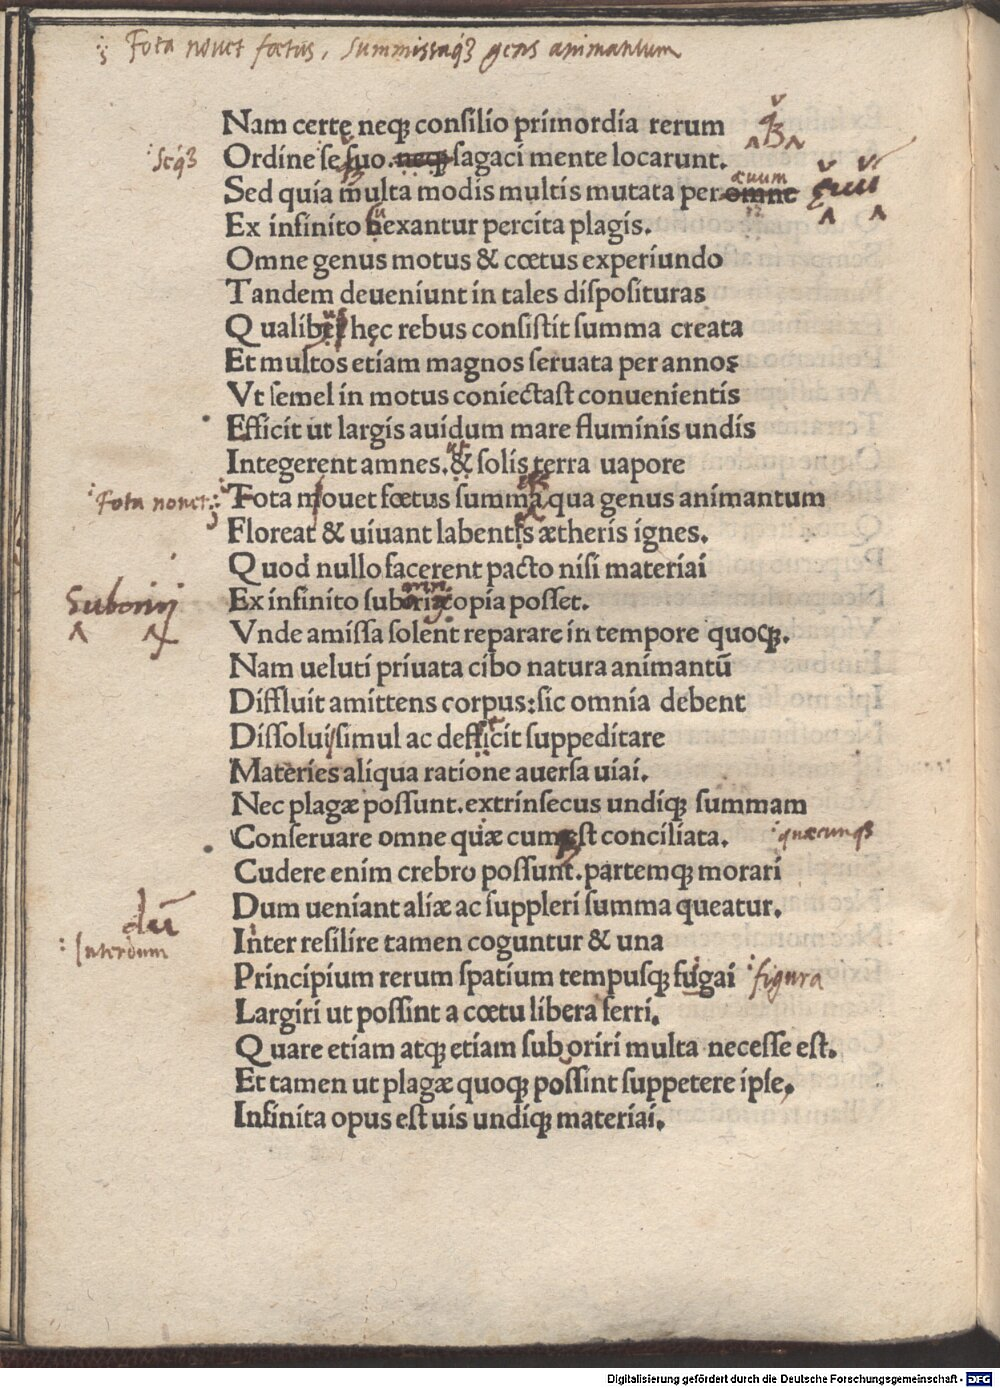 Fota nouet fœtus, summissaqꝫ gens animantum
Nam certę neqꝫ consilio primordia rerum qꝫ
Seqꝫ Ordine se suo neqꝫ sagaci mente locarunt.
Sed quia multa modis multis mutata per omne æuum
Ex infinito bexantur percita plagis.
Omne genus motus & cœtus experiundo
Tandem deueniunt in tales disposituras
Qualibet hęc rebus consistit summa creata
Et multos etiam magnos seruata per annos
Vt semel in motus coniectast conuenientis
Efficit ut largis auidum mare fluminis undis
Integerent amnes. & solis terra uapore
Fota nouet Fota mouet fœtus summa qua genus animantum
Floreat & uiuant labentis ætheris ignes.
Quod nullo facerent pacto nisi materiai
Suboriri Ex infinito suboriri copia posset.
Vnde amissa solent reparare in tempore quoqꝫ.
Nam ueluti priuata cibo natura animantū
Diffluit amittens corpus: sic omnia debent
Dissolui simul ac defficit suppeditare
Materies aliqua ratione auersa uiai.
Nec plagæ possunt. extrinsecus undiqꝫ summam
Conseruare omne quæ cum est conciliata. quæcunqꝫ
Cudere enim crebro possunt. partemqꝫ morari
dū Dum ueniant aliæ ac suppleri summa queatur.
Interdum Inter resilire tamen coguntur & una
Principium rerum spatium tempusqꝫ fugai figura
Largiri ut possint a cœtu libera ferri.
Quare etiam atqꝫ etiam suboriri multa necesse est.
Et tamen ut plagæ quoqꝫ possint suppetere ipse,
Infinita opus est uis undiqꝫ materiai.
Digitalisierung gefördert durch die Deutsche Forschungsgemeinschaft - DFG